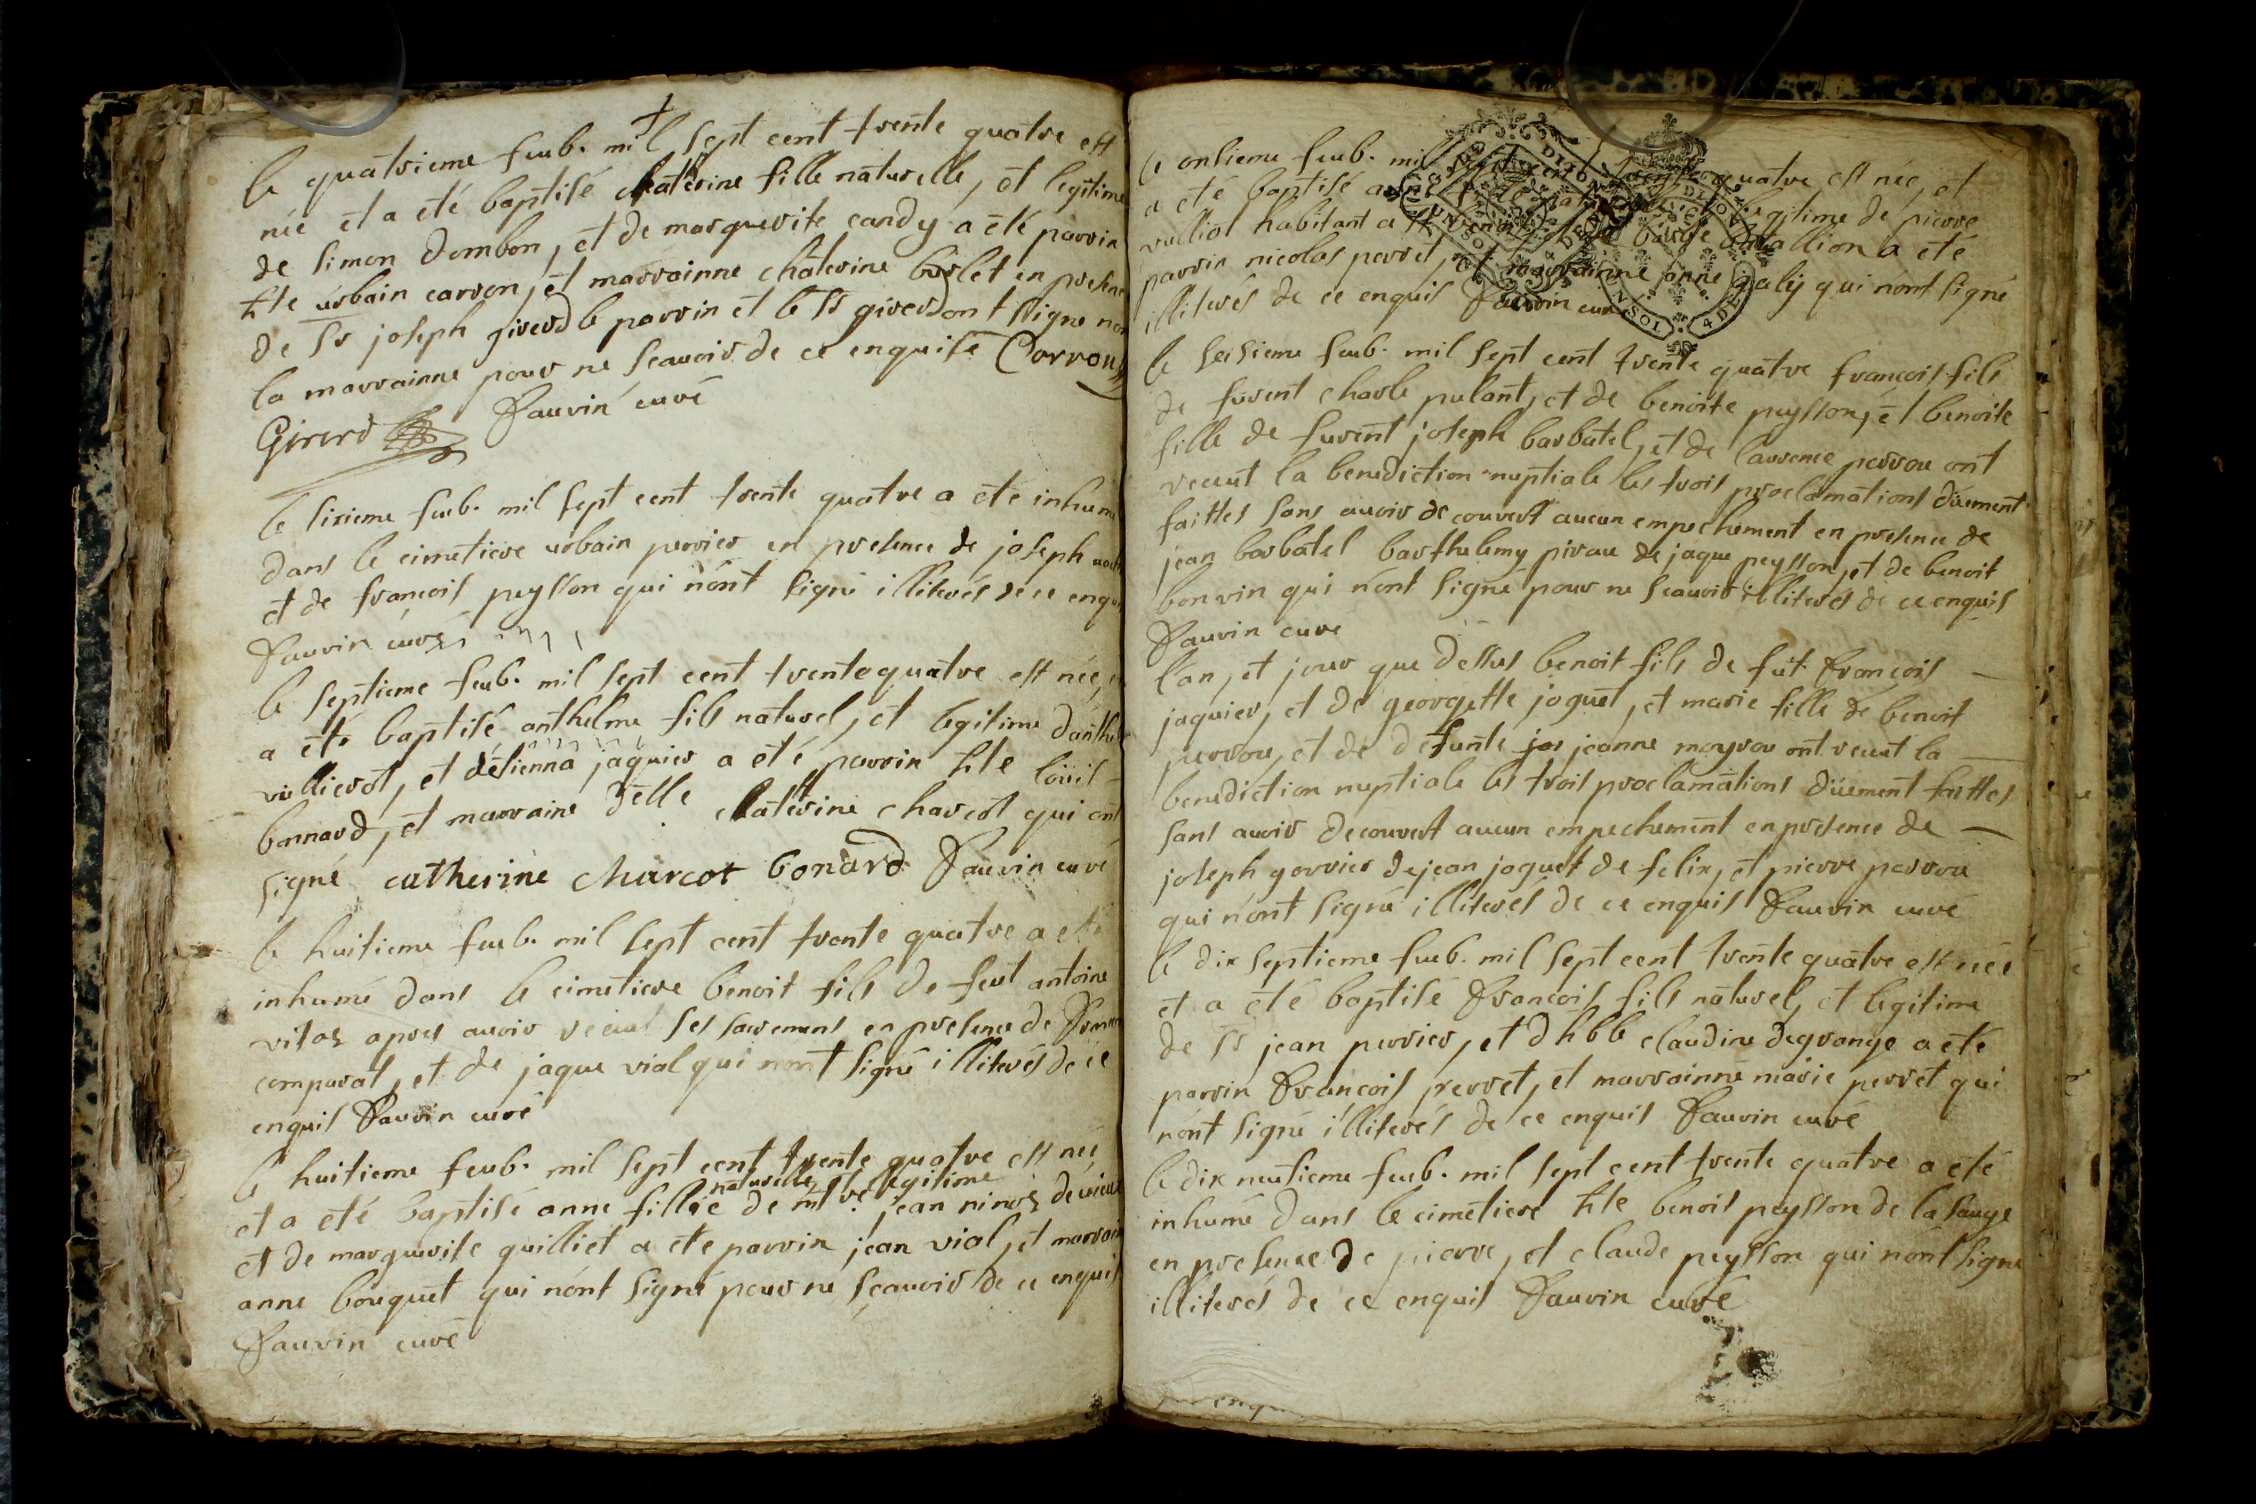 le quatrieme feub. mil sept cent trente quatre est
née et a eté baptisé chaterine fille naturelle, et legitime
de simon dombon, et de marguerite candy a eté parrin
hte urbain carron, et marrainne chaterine borlet en presence
de sr joseph girerd le parrin et le sr girerd ont signe non
la marrainne pour ne scauoir de ce enquise Carron
Girerd fauvin curé
le sixieme feub. mil sept cent trente quatre a eté inhumé
dans le cimetiere urbain perrier en presence de joseph
et de francois peysson qui n'ont signé illiterés de ce enquis
fauvin curé
le septieme feub. mil sept cent trente quatre est née, et
a eté baptisé anthelme fils naturel, et legitime d'anthe
vullierot, et d'étienna jaquier a eté parrin hte loüis
bonnard, et marraine delle chaterine charcot qui ont
signé catherine charcot bonard fauvin curé
le huitieme feub. mil sept cent trente quatre a eté
inhumé dans le cimetiere benoit fils de feut antoine
vitoz apres auoir recut ses sacremens en presence de
comparat, et de jaque vial qui n'ont signé illiterés de ce
enquis fauvin curé
le huitieme feub. mil sept cent trente quatre est née
naturelle, et legitime
et a eté baptisé anne fillie de mt re jean ninoz de
et de marguerite guilliet a eté parrin jean vial, et marraine
anne bouquet qui n'ont signé pour ne sçauoir de ce enquis
fauvin curé
le onsieme feub. mil sept cent trente quatre est née, et
a eté baptisé anne fille naturelle et legitime de pierre
vulliot habitant a a eté
parrin nicolas perret, et marrainne anne galy qui n'ont signé
illiterés de ce enquis fauvin curé
le seisieme feub. mil sept cent trente quatre francois fils
de furent charle pulant, et de benoite peysson, et benoite
fille de furent joseph barbatel, et de laurence perrou ont
recut la benediction nuptiale les trois proclamations düement
faittes sans auoir decouvert aucun empechement en presence de
jean barbatel barthelemy pirau de jaque peysson, et de benoit
bonvin qui n'ont signé pour ne scauoir illiterés de ce enquis
fauvin curé
l'an, et jour que dessus benoit fils de fut francois
jaquier, et de georgette joguet, et marie fille de benoit
perrou, et de defunte jeanne moyrou ont recut la
benediction nuptiale les trois proclamations düement faittes
sans auoir decouvert aucun empechement en presence de
joseph gorrier de jean joguet de felix, et pierre perrou
qui n'ont signé illiterés de ce enquis fauvin curé
le dix septieme feub. mil sept cent trente quatre est née
et a eté baptisé francois fils naturel, et legitime
de sr jean perrier, et d hble claudine degrange a eté
parrin francois perret, et marrainne marie perret qui
n'ont signé illiterés de ce enquis fauvin curé
le dix neusieme feub. mil sept cent trente quatre a eté
inhumé dans le cimetiere hte benoit peysson de la sauge
en presence de pierre, et claude peysson qui n'ont signe
illiterés de ce enquis fauvin curé